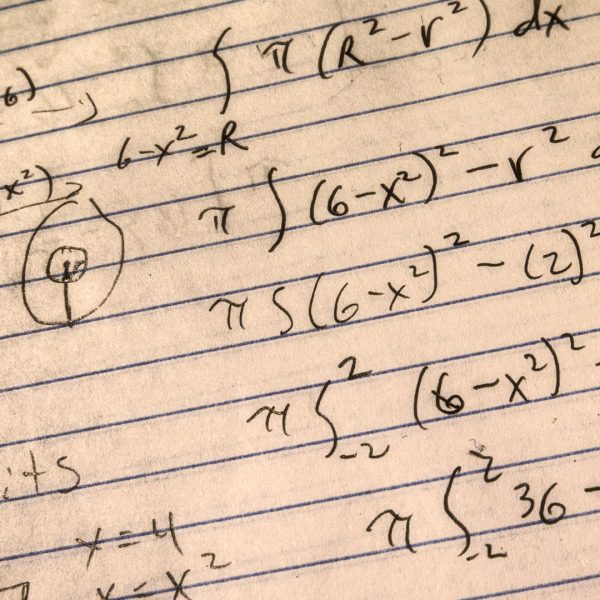 ∫ π (R² − r²) dx
6) →
6−x² = R
x²)
π ∫ (6−x²)² − r²
π ∫ (6−x²)² − (2)²
π ∫₋₂² (6−x²)² −
its
π ∫₋₂² 36 −
x = 4
x = x²